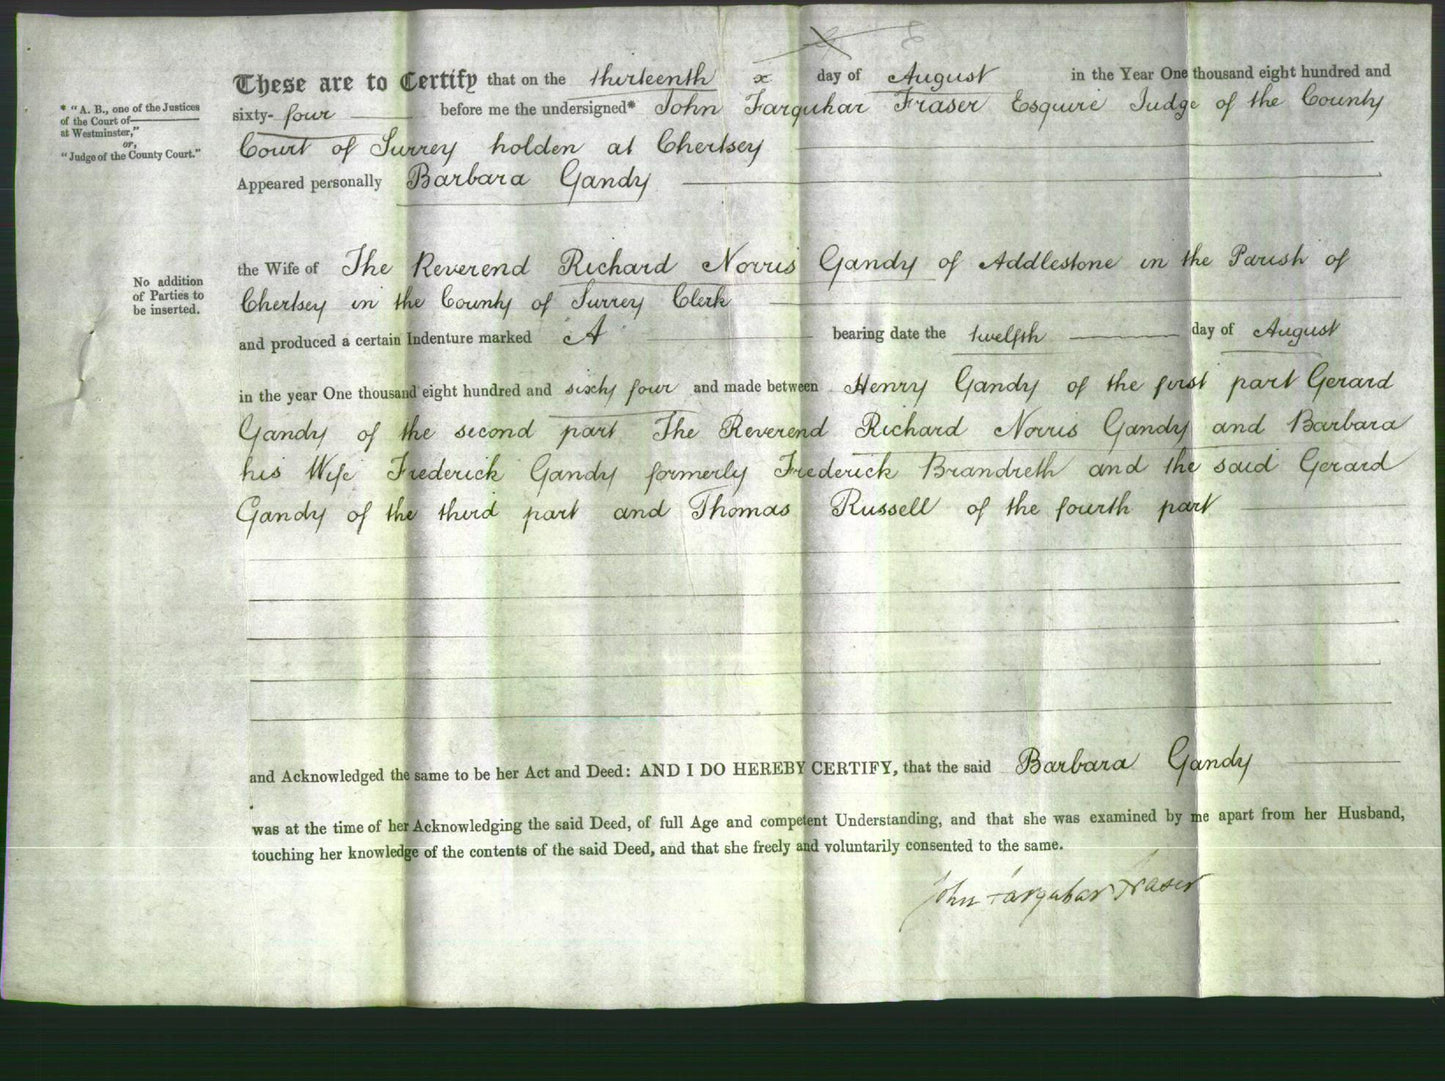 These are to Certify that on the thirteenth x day of August in the Year One thousand eight hundred and
* "A. B., one of the Justices
of the Court of
at Westminster,"
or,
"Judge of the County Court."
sixty- four before me the undersigned* John Farquhar Fraser Esquire Judge of the County
Court of Surrey holden at Chertsey
Appeared personally Barbara Gandy
the Wife of The Reverend Richard Norris Gandy of Addlestone in the Parish of
No addition
of Parties to
be inserted.
Chertsey in the County of Surrey Clerk
and produced a certain Indenture marked 'A' bearing date the twelfth day of August
in the year One thousand eight hundred and sixty four and made between Henry Gandy of the first part Gerard
Gandy of the second part The Reverend Richard Norris Gandy and Barbara
his Wife Frederick Gandy formerly Frederick Brandreth and the said Gerard
Gandy of the third part and Thomas Russell of the fourth part
and Acknowledged the same to be her Act and Deed: AND I DO HEREBY CERTIFY, that the said Barbara Gandy
was at the time of her Acknowledging the said Deed, of full Age and competent Understanding, and that she was examined by me apart from her Husband,
touching her knowledge of the contents of the said Deed, and that she freely and voluntarily consented to the same.
John Farquhar Fraser